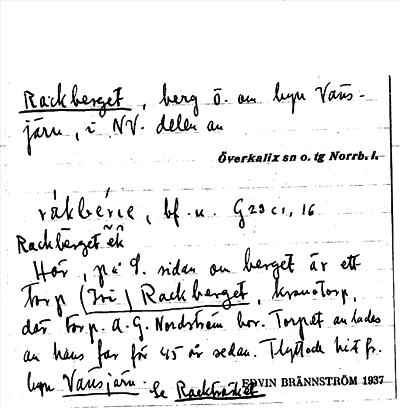 Rackberget, berg ö. om byn Väns-
järn, i NV. delen av
Överkalix sn o. tg Norrb. l.
rákbérie, bf. u. G23 c1, 16
Rackberget
Här, på S. sidan om berget är ett
torp (Tri) Rackberget, kronotorp,
där torp. A. G. Nordström bor. Torpet anlades
av hans far för 45 år sedan. Flyttade hit fr.
byn Vänsjärn. Se Rackträsket
EDVIN BRÄNNSTRÖM 1937